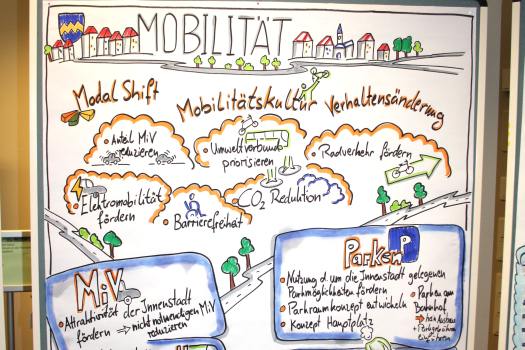 MOBILITÄT
Modal Shift
Mobilitätskultur
Verhaltensänderung
• Anteil MiV
reduzieren
• Umweltverbund
priorisieren
• Radverkehr fördern
• Elektromobilität
fördern
• Barrierefreiheit
CO2 Reduktion
MiV
• Attraktivität der Innenstadt
fördern ⇒ nicht notwendigen MiV
reduzieren
Parken P
• Nutzung d. um die Innenstadt gelegenen
Parkmöglichkeiten fördern
• Parkraumkonzept entwickeln
• Konzept Hauptplatz
• Parken am
Bahnhof
⇒ kein Ausbau
+ Parkgebühren
einführen